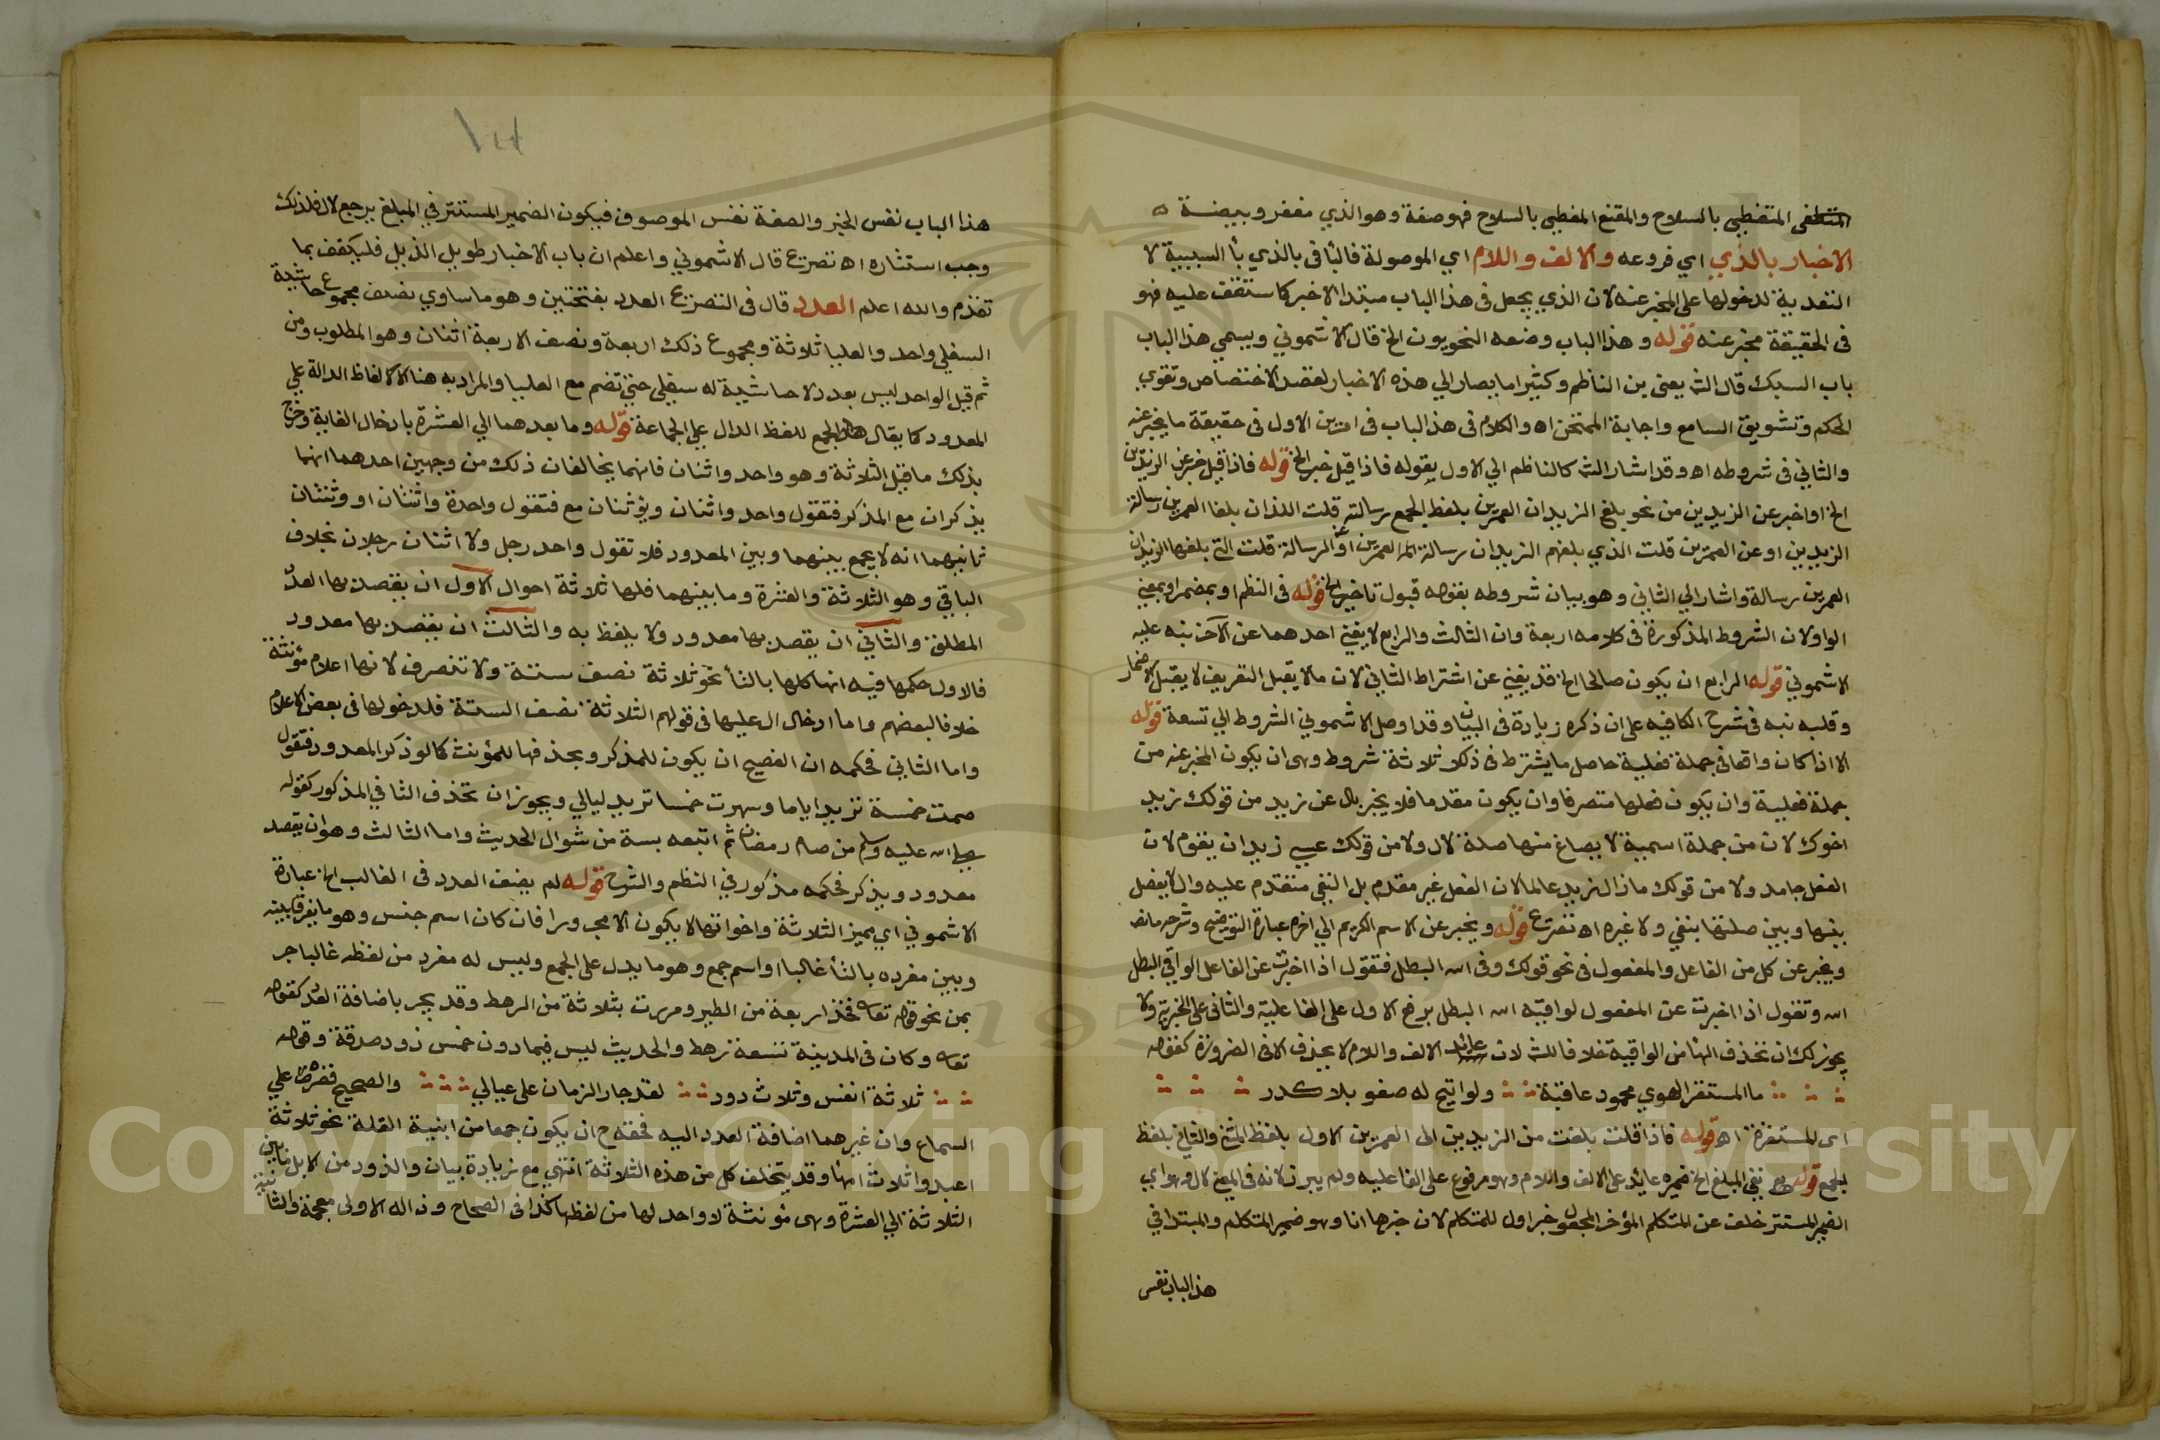 المتغطي بالسلاح والمقنع المغطي بالسلاح فهو صفة وهو الذي مغفر وبيضة ه
الاخبار بالذي اي فروعه والالف واللام اي الموصولة فالبا في بالذي با السببية لا
التعدية لدخولها على المخبر عنه لان الذي يجعل في هذا الباب مبتدا لا خبر كما ستقف عليه فهو
في الحقيقة مخبر عنه قوله وهذا الباب وضعه النحويون الخ قال الاشموني ويسمي هذا الباب
باب السبك قال الشـ يعنى بن الناظم وكثيرا ما يصار الي هذه الاخبار لقصد الاختصاص وتقوي
الحكم وتشويق السامع واجابة الممتحن اه والكلام في هذ الباب في امرين الاول في حقيقة ما يخبر عنه
والثاني في شروطه اه وقد اشار الشـ كالناظم الي الاول بقوله فاذا قيل خبر الخ قوله فاذا قيل خبر عن الزيدين
الخ او اخبر عن الزيدين من نحو بلغ الزيدان العمرين بلفظ الجمع رسالة قلت اللذان بلغا العمرين رسالة
الزيدين او عن العمرين قلت الذي بلغهم الزيدان رسالة العمرين او عن الرسالة قلت التي بلغها الزيدان
العمرين رسالة واشار الي الثاني وهو بيان شروطه بقوله قبول تاخير الخ قوله في النظم او بمضمر او بمعني
الواو لان الشروط المذكورة في كلامه اربعة وان الثالث والرابع لا يغني احدهما عن الآخر نبه عليه
الاشموني قوله الرابع ان يكون صالحا الخ قد يغني عن اشتراط الثاني لان ما لا يقبل التعريف لا يقبل الاضمار
وقلبه نبه في شرح الكافيه على ان ذكره زيادة في البيان وقد اوصل الاشموني الشروط الي تسعة قوله
الا اذا كان واقعا في جملة فعلية حاصل ما يشترط في ذلك ثلاثة شروط وهي ان يكون المخبر عنه من
جملة فعلية وان يكون فعلها متصرفا وان يكون مقدما فلا يخبر بال عن زيد من قولك زيد
اخوك لان من جملة اسمية لا يصاغ منها صلة لال ولا من قولك عسي زيد ان يقوم لان
الفعل جامد ولا من قولك ما زال زيد عالما لان الفعل غير مقدم بل النفي متقدم عليه وال لا يفصل
بينها وبين صلتها بنفي ولا غيره اه تصريح قوله ويخبر عن الاسم الكريم الي اخره عبارة التوضيح وشرحه مانصه
ويخبر عن كل من الفاعل والمفعول في نحو قولك وقى الله البطل فتقول اذا اخبرت عن الفاعل الواقي البطل
الله وتقول اذا اخبرت عن المفعول لواقيه الله البطل برفع الاول على الفاعلية والثاني على الخبرية ولا
يجوز لك ان تحذف الها من الواقيه خلافا للشـ لان عائد الالف واللام لا يحذف الا في الضرورة كقوله
ما المستفز الهوي محمود عاقبة ولو اتيح له صفو بلا كدر
اي المستفزه اه قوله فاذا قلت بلغت من الزيدين الى العمرين الاول بلفظ المثنى والثاني بلفظ
الجمع قوله ففي المبلغ الخ ضميره عائد على الالف واللام وهو مرفوع على الفاعليه ولم يبرز لانه في المعنى لال وهو اي
الضمير المستتر خلف عن المتكلم المؤخر المجعول خبر اول للمتكلم لان خبرها انا وهو ضمير المتكلم والمبتدا في
هذ الباب نفس
هذا الباب نفس الخبر والصفة نفس الموصوف فيكون الضمير المستتر في المبلغ يرجع لال فلذلك
وجب استتاره اه تصريح قال الاشموني واعلم ان باب الاخبار طويل الذيل فليكتف بما
تقدم والله اعلم العدد قال في التصريح العدد بفتحتين وهو ما ساوي نصف مجموع حاشيتيه
السفلي واحد والعليا ثلاثة ومجموع ذلك اربعة ونصف الاربعة اثنان وهو المطلوب ومن
ثم قيل الواحد ليس بعدد لا حاشية له سفلي حتي تضم مع العليا والمراد به هنا الالفاظ الدالة علي
المعدود كما يقال الجمع للفظ الدال علي الجماعة قوله وما بعدهما الي العشرة بادخال الغاية وخرج
بذلك ما قبل الثلاثة وهو واحد واثنان فانهما يخالفان ذلك من وجهين احدهما انهما
يذكران مع المذكر فتقول واحد واثنان ويؤنثان مع فتقول واحدة واثنتان او وثنتان
ثانيهما انه لا يجمع بينهما وبين المعدود فلا تقول واحد رجل ولا اثنان رجلان بخلاف
الباقي وهو الثلاثة والعشرة وما بينهما فلها ثلاثة احوال الاول ان يقصد بها العدد
المطلق والثاني ان يقصد بها معدود ولا يلفظ به والثالث ان يقصد بها معدود
فالاول حكمها فيه انها كلها بالتا نحو ثلاثة نصف ستة ولا تنصرف لانها اعلام مؤنثة
خلافا لبعضهم واما ادخال ال عليها في قولهم الثلاثة نصف الستة فلدخولها في بعض الاعلام
واما الثاني فحكمه ان الفصيح ان يكون للمذكر وبحذفها للمؤنث كما لو ذكر المعدود فتقول
صمت خمسة تريد اياما وسهرت خمسا تريد ليالي ويجوز ان تحذف التا في المذكور كقوله
صلى الله عليه وسلم من صام رمضان ثم اتبعه بستة من شوال الحديث واما الثالث وهو ان يقصد
معدود ويذكر فحكمه مذكور في النظم والشرح قوله لم يضف العدد في الغالب الخ عبارة
الاشموني اي مميز الثلاثة واخواتها لا يكون الا مجرورا فان كان اسم جنس وهو ما يفرق بينه
وبين مفرده بالتا غالبا او اسم جمع وهو ما يدل على الجمع وليس له مفرد من لفظه غالبا جر
بمن نحو قوله تعالى فخذ اربعة من الطير ومررت بثلاثة من الرهط وقد يجر باضافة العدد كقوله
تعالى وكان في المدينة تسعة رهط والحديث ليس فيما دون خمس ذود صدقة وقوله
ثلاثة انفس وثلاث ذود لقد جار الزمان على عيالي والصحيح قصره علي
السماع وان غيرهما اضافة العدد اليه فحقه ح ان يكون جمعا من ابنية القلة نحو ثلاثة
اعبد واثلاث امها وقد يتخلف كل من هذه الثلاثة انتهي مع زيادة بيان والذود من الابل مابين
الثلاثة الي العشرة وهي مؤنثة لا واحد لها من لفظها كذا في الصحاح وذاله الاولى معجمة والثانية
Copyright © King Saud University
1957